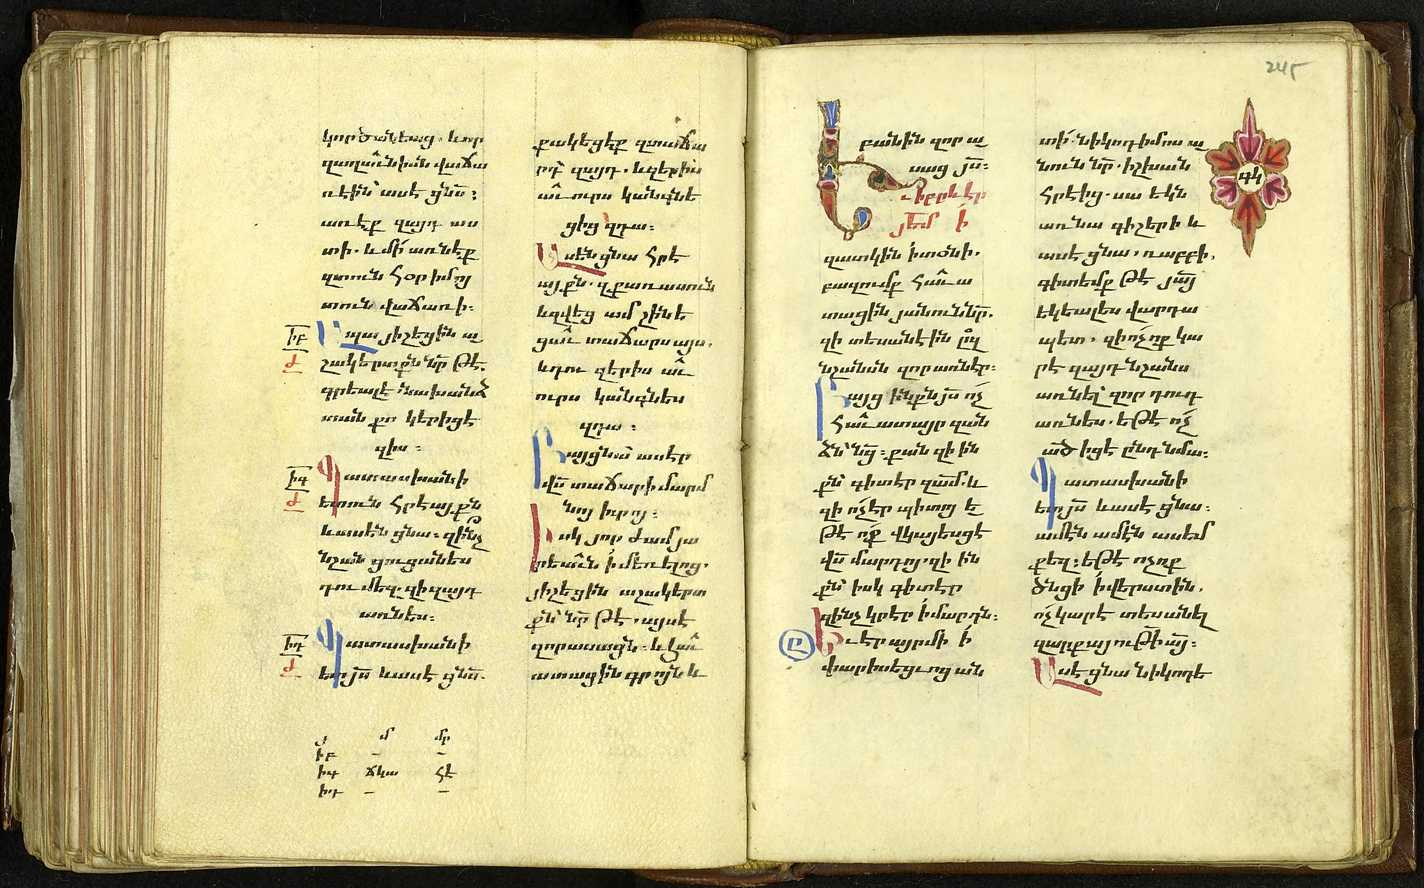 կործանեաց. և որ
զաղաւնիսն վաճա
ռէին՝ ասէ ցնս։
առէք զայդ աս
տի. և մի՛ առնէք
զտուն հօր իմոյ
տուն վաճառի։
Ապա յիշեցին ա
շակերտքն նր թէ.
գրեալ է՝ նախանձ
տան քո կերիցէ
զիս։
Պատասխանի
ետուն հրեայքն
և ասեն ցնա. զի՞նչ
նշան ցուցանես
դու մեզ. զի զայդ
առնես։
Պատասխանի
ետ յս և ասէ ցնս.
ԻԲ
Ժ
ԻԳ
Ժ
ԻԴ
Ժ
քակեցէք զտաճա
րդ զայդ. և զերիս
աւուրս կանգնե
ցից զդա։
Ասեն ցնա հրէ
այքն. զքառասուն
և զվեց ամ շինե
ցաւ տաճարս այս.
և դու զերիս աւ
ուրս կանգնես
զդա։
Բայց նա ասէր
վս տաճարի մարմ
նոյ իւրոյ։
Իսկ յորժամ յա
րեաւն ի մեռելոց.
յիշեցին աշակերտ
քն նր թէ. այս է
զոր ասացն. և հաւ
ատացին գրոյն և
245
բանին զոր ա
սաց յս։
Եւ իբրև էր
յեմ ի
զատկին ի տօնի.
բազումք հաւա
տացին յանուն նր.
զի տեսանէին ըզ
նշանսն զոր առնէր։
Բայց ինքն յս ոչ
հաւատայր զան
ձն նց. քանզի ին
քն գիտէր զամ. և
զի ոչ էր պիտոյ ե
թէ ոք վկայեսցէ
վս մարդոյ. զի ին
քն իսկ գիտէր
զինչ կրէր ի մարդն։
Եւ էր այր մի ի
փարիսեցւոց ան
Ը
տի. նիկոդիմոս ա
նուն նր. իշխան
հրէից. սա եկն
առ նա գիշերի և
ասէ ցնա. ռաբբի.
գիտեմք թէ յայ
եկեալ ես վարդա
պետ. զի ոչ ոք կա
րէ զայդ նշանս
առնել՝ զոր դուդ
առնես. եթէ ոչ
ած իցէ ընդ նմա։
Պատասխանի
ետ յս և ասէ ցնա.
ամէն ամէն ասեմ
քեզ. եթէ ոչ ոք
ծնցի ի վերստին.
ոչ կարէ տեսանել
զարքայութի այ։
Ասէ ցնա նիկոդե
ԳԿ